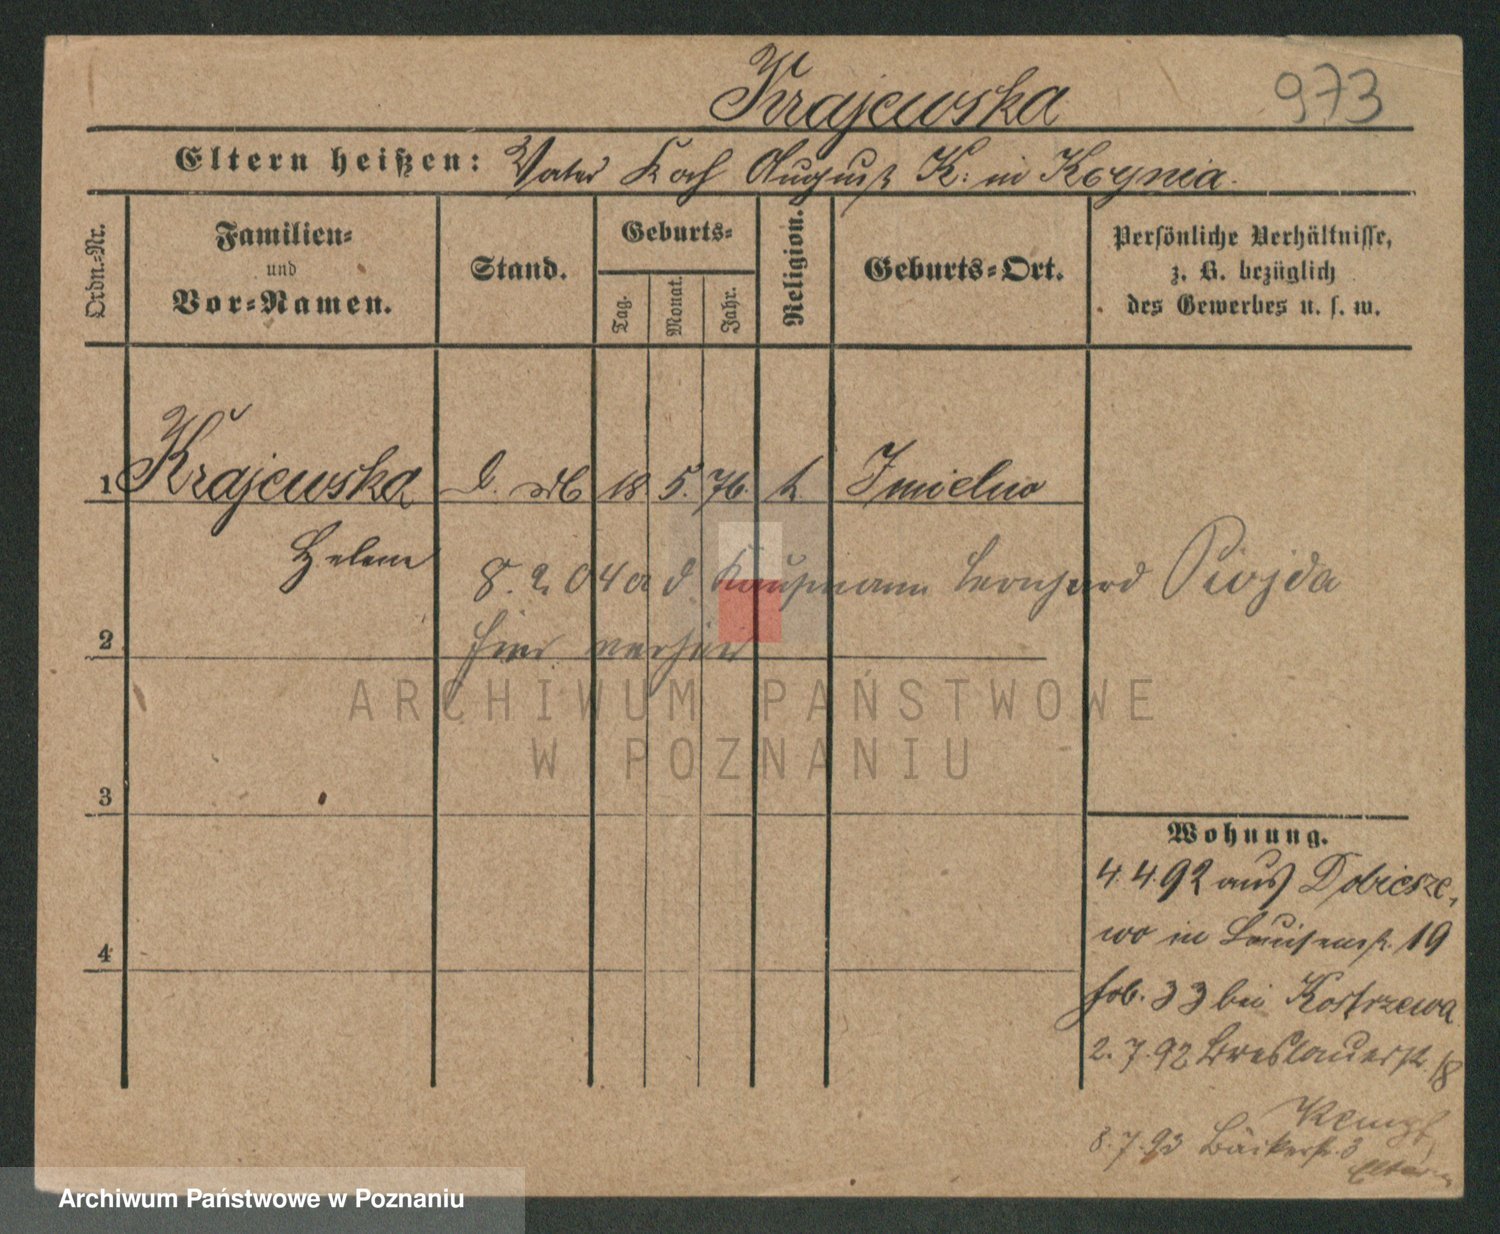 Krajewska 973
Eltern heißen: Vater Koch August K: in Kcynia.
Ordn.-Nr.
Familien-
und
Vor-Namen.
Stand.
Geburts-
Tag.
Monat.
Jahr.
Religion.
Geburts-Ort.
Persönliche Verhältnisse,
z. B. bezüglich
des Gewerbes u. s. w.
1 Krajewska 18 5. 76. k. Imielno
Helene
8. 2. 04 a d. Kaufmann Leonhard
2 hier verheir
3
4
Wohnung.
4.4.92 aus Dobiesze,
wo in Louisenstr. 19
bei Kostrzewa
2.7.92 Breslauerstr. 18
8.7.93 Bäckerstr. 3
Eltern
ARCHIWUM PAŃSTWOWE
W POZNANIU
Archiwum Państwowe w Poznaniu